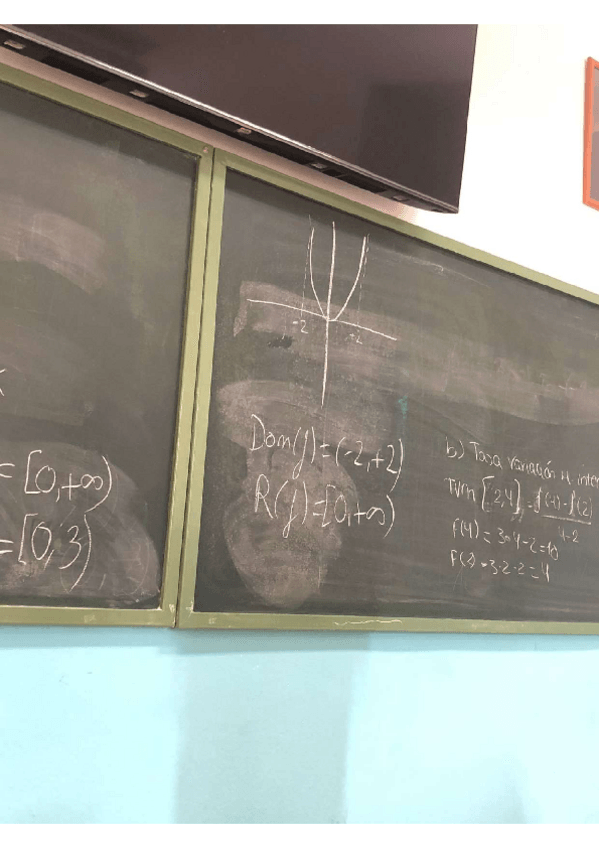 = [0,+∞)
= [0,3)
-2
Dom(f) = (-2,+2)
R(f) = [0,+∞)
b) Tasa variación
TVM [2,4] = f(4) - f(2)
4-2
f(4) = 3·4-2=10
f(2) = 3·2-2=4